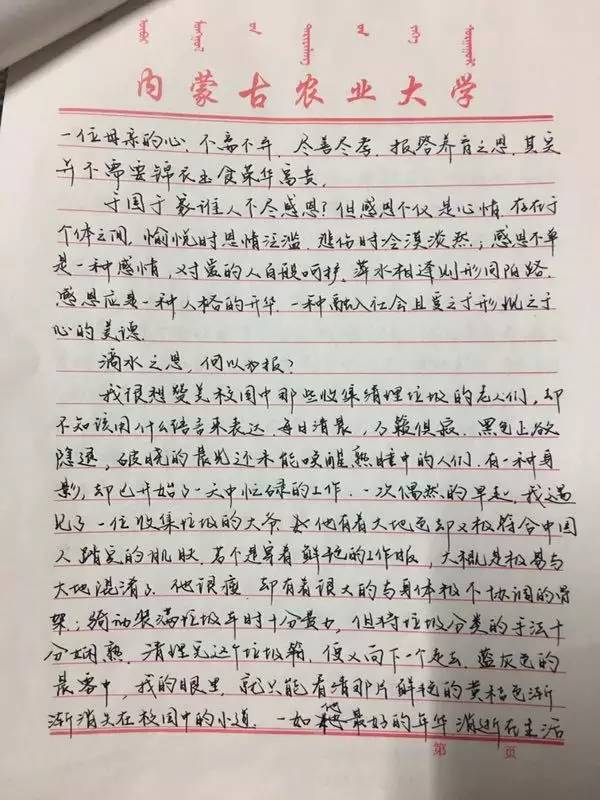 内蒙古农业大学
一位母亲的心，不离不弃，尽善尽孝，报答养育之恩，其实
并不需要锦衣玉食荣华富贵。
于国于家谁人不尽感恩？但感恩不仅是心情，存在于
个体之间，愉悦时恩情泛滥，悲伤时冷漠淡然；感恩不单
是一种感情，对蓝的人百般呵护，萍水相逢则形同陌路。
感恩应是一种人格的升华，一种融入社会且要之于形，抱之于
心的美德。
滴水之恩，何以为报？
我很想赞美校园中那些收集清理垃圾的老人们，却
不知该用什么语言来表达。每日清晨，万籁俱寂，黑色正欲
隐退，破晓的晨光还未能唤醒熟睡中的人们，有一种身
影，却已开始了一天中忙碌的工作。一次偶然的早起，我遇
见了一位收集垃圾的大爷，他有着大地色却又极符合中国
人踏实的肌肤，若不是穿着鲜艳的工作服，大概是极易与
大地混淆了。他很瘦，却有着很大的与身体极不协调的骨
架；骑动装满垃圾车时十分费力，但将垃圾分类的手法十
分娴熟，清理完这个垃圾箱，便又向下一个走去，蓝灰色的
晨雾中，我的眼里，就只能看清那片鲜艳的黄桔色渐
渐消失在校园中的小道。一如他最好的年华消逝在生活
第 页